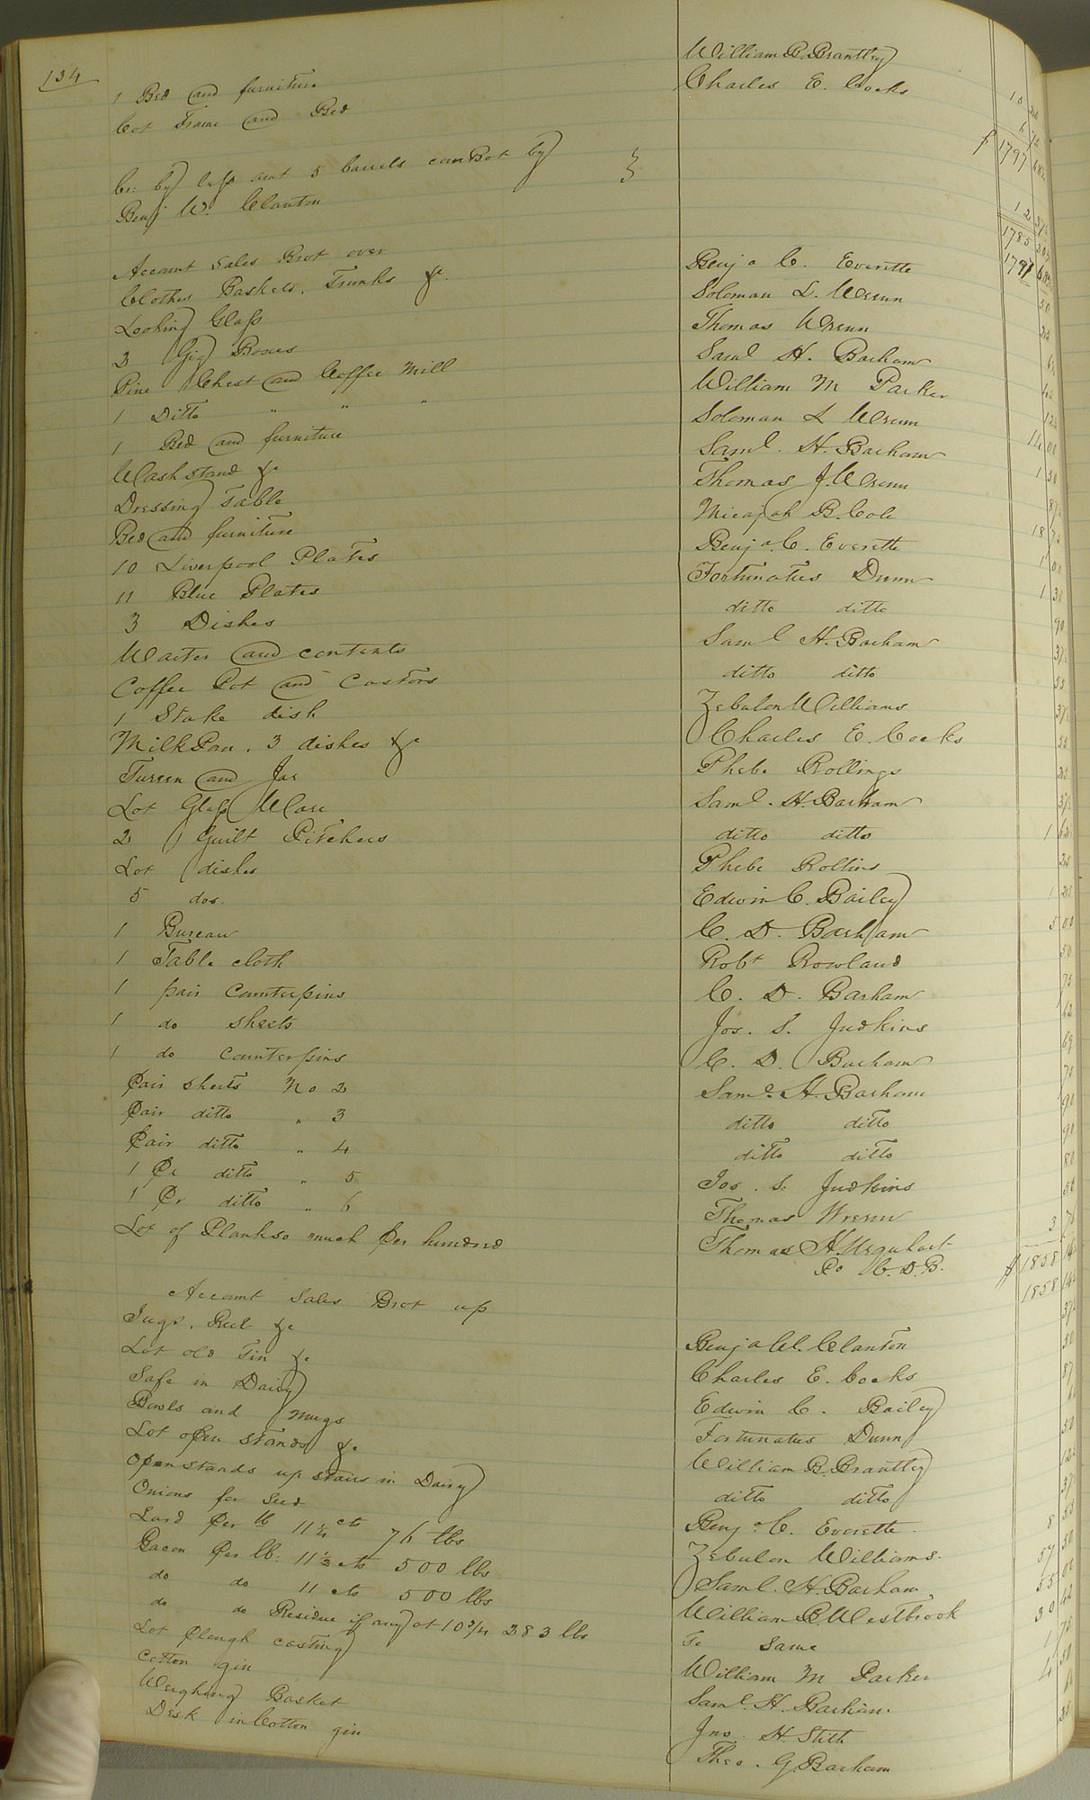 134
1 Bed and furniture William B. Brantley 10 20
Cot Frame and Bed Charles E. Cocks
$ 1797
Cr. by loss acct 5 barrels corn Bot by }
Benj W. Clanton 12
1785
Account Sales Brot over 1797
Clothes Baskets, Trunks &c. Benja C. Everette 50
Looking Glass Solomon L. Wrenn
3 Gig Boxes Thomas Wrenn
Pine Chest and Coffee Mill Saml H. Barham
1 Ditto " " " William M Parker
1 Bed and furniture Solomon L Wrenn
Wash stand &c Saml. H. Barham 1 50
Dressing Table Thomas J. Wrenn
Bed and furniture Micajah B. Cole
10 Liverpool Plates Benja. C. Everette 1 00
11 Blue Plates Fortunatus Dunn 1
3 Dishes ditto ditto 90
Waiter and contents Saml H. Barham
Coffee Pot and Castors ditto ditto
1 Stake dish Zebulon Williams
Milk Pan, 3 dishes &c Charles E. Cocks
Tureen and Jar Phebe Rollings
Lot Glass Ware Saml. H. Barham
2 Guilt Pitchers ditto ditto
Lot dishes Phebe Rollins
5 do. Edwin C. Bailey
1 Bureau C. D. Barham 5 00
1 Table cloth Robt Rowland 50
1 pair Counterpins C. D. Barham 75
1 do Sheets Jos. S. Judkins 62
1 do Counterpins C. D. Barham
Pair sheets No 2 Saml. H. Barham
Pair ditto " 3 ditto ditto 90
Pair ditto " 4 ditto ditto 90
1 Pr ditto " 5 Jos. S. Judkins 80
1 Pr ditto " 6 Thomas Wrenn
Lot of Plank so much Per hundred Thomas H. Urquhart 3
Po C. D. B. $ 1858
Account Sales Brot up 1858
Jugs, Reel &c Benja W. Clanton
Lot old Tin &c Charles E. Cocks 50
Safe in Dairy Edwin C. Bailey
Bowls and Mugs Fortunatus Dunn
Lot open stands &c William B. Brantley 50
Open stands up stairs in Dairy ditto ditto
Onions for Seed Benja. C. Everette
Lard Per lb 11 1/4 cts 76 lbs Zebulon Williams. 8
Bacon Per lb: 11 1/2 cts 500 lbs Saml. H. Barham 57 50
do do 11 cts 500 lbs William B. Westbrook 55 00
do do Residue if any at 10 3/4 283 lbs To Same 30 42
Lot Plough casting William M Parker 1
Cotton gin Saml. H. Barham 4
Weighing Basket Jno. H. Stith
Desk in Cotton gin Theo. G. Barham